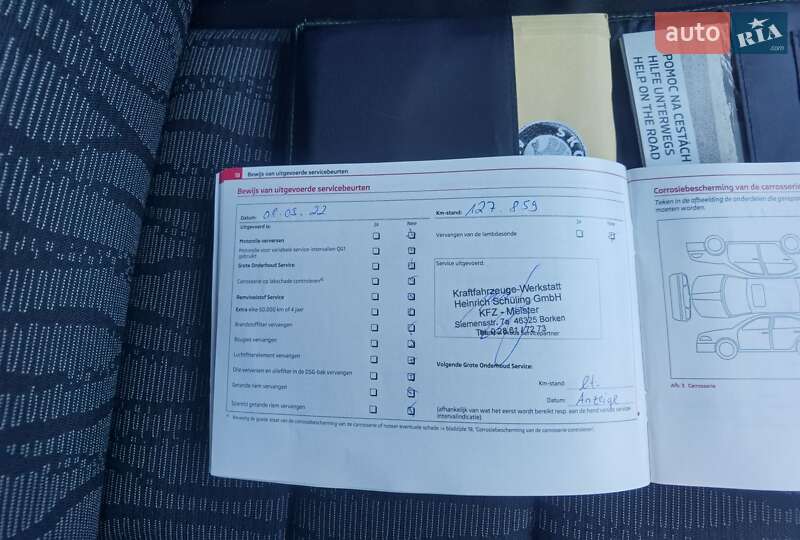 auto RIA .com
SKO
POMOC NA CESTÁCH
HILFE UNTERWEGS
HELP ON THE ROAD
18 Bewijs van uitgevoerde servicebeurten
Bewijs van uitgevoerde servicebeurten
Datum: 08.03.22
Km-stand: 127.859
Uitgevoerd is: Ja Nee
Motorolie verversen
Motorolie voor variabele service-intervallen QG1
gebruikt
Grote Onderhoud Service
Carrosserie op lakschade controleren
Remvloeistof Service
Extra elke 60.000 km of 4 jaar
Brandstoffilter vervangen
Bougies vervangen
Luchtfilterelement vervangen
Olie verversen en oliefilter in de DSG-bak vervangen
Getande riem vervangen
Spanrol getande riem vervangen
Ja Nee
Vervangen van de lambdasonde
Service uitgevoerd:
Kraftfahrzeuge-Werkstatt
Heinrich Schüling GmbH
KFZ - Meister
Siemensstr. 7a 46325 Borken
servicepartner
Volgende Grote Onderhoud Service:
Km-stand: lt.
Datum: Anzeige
(afhankelijk van wat het eerst wordt bereikt resp. aan de hand van de service-
intervalindicatie).
Corrosiebescherming van de carrosserie
Teken in de afbeelding de onderdelen die
moeten worden.
Afb. 3 Carrosserie